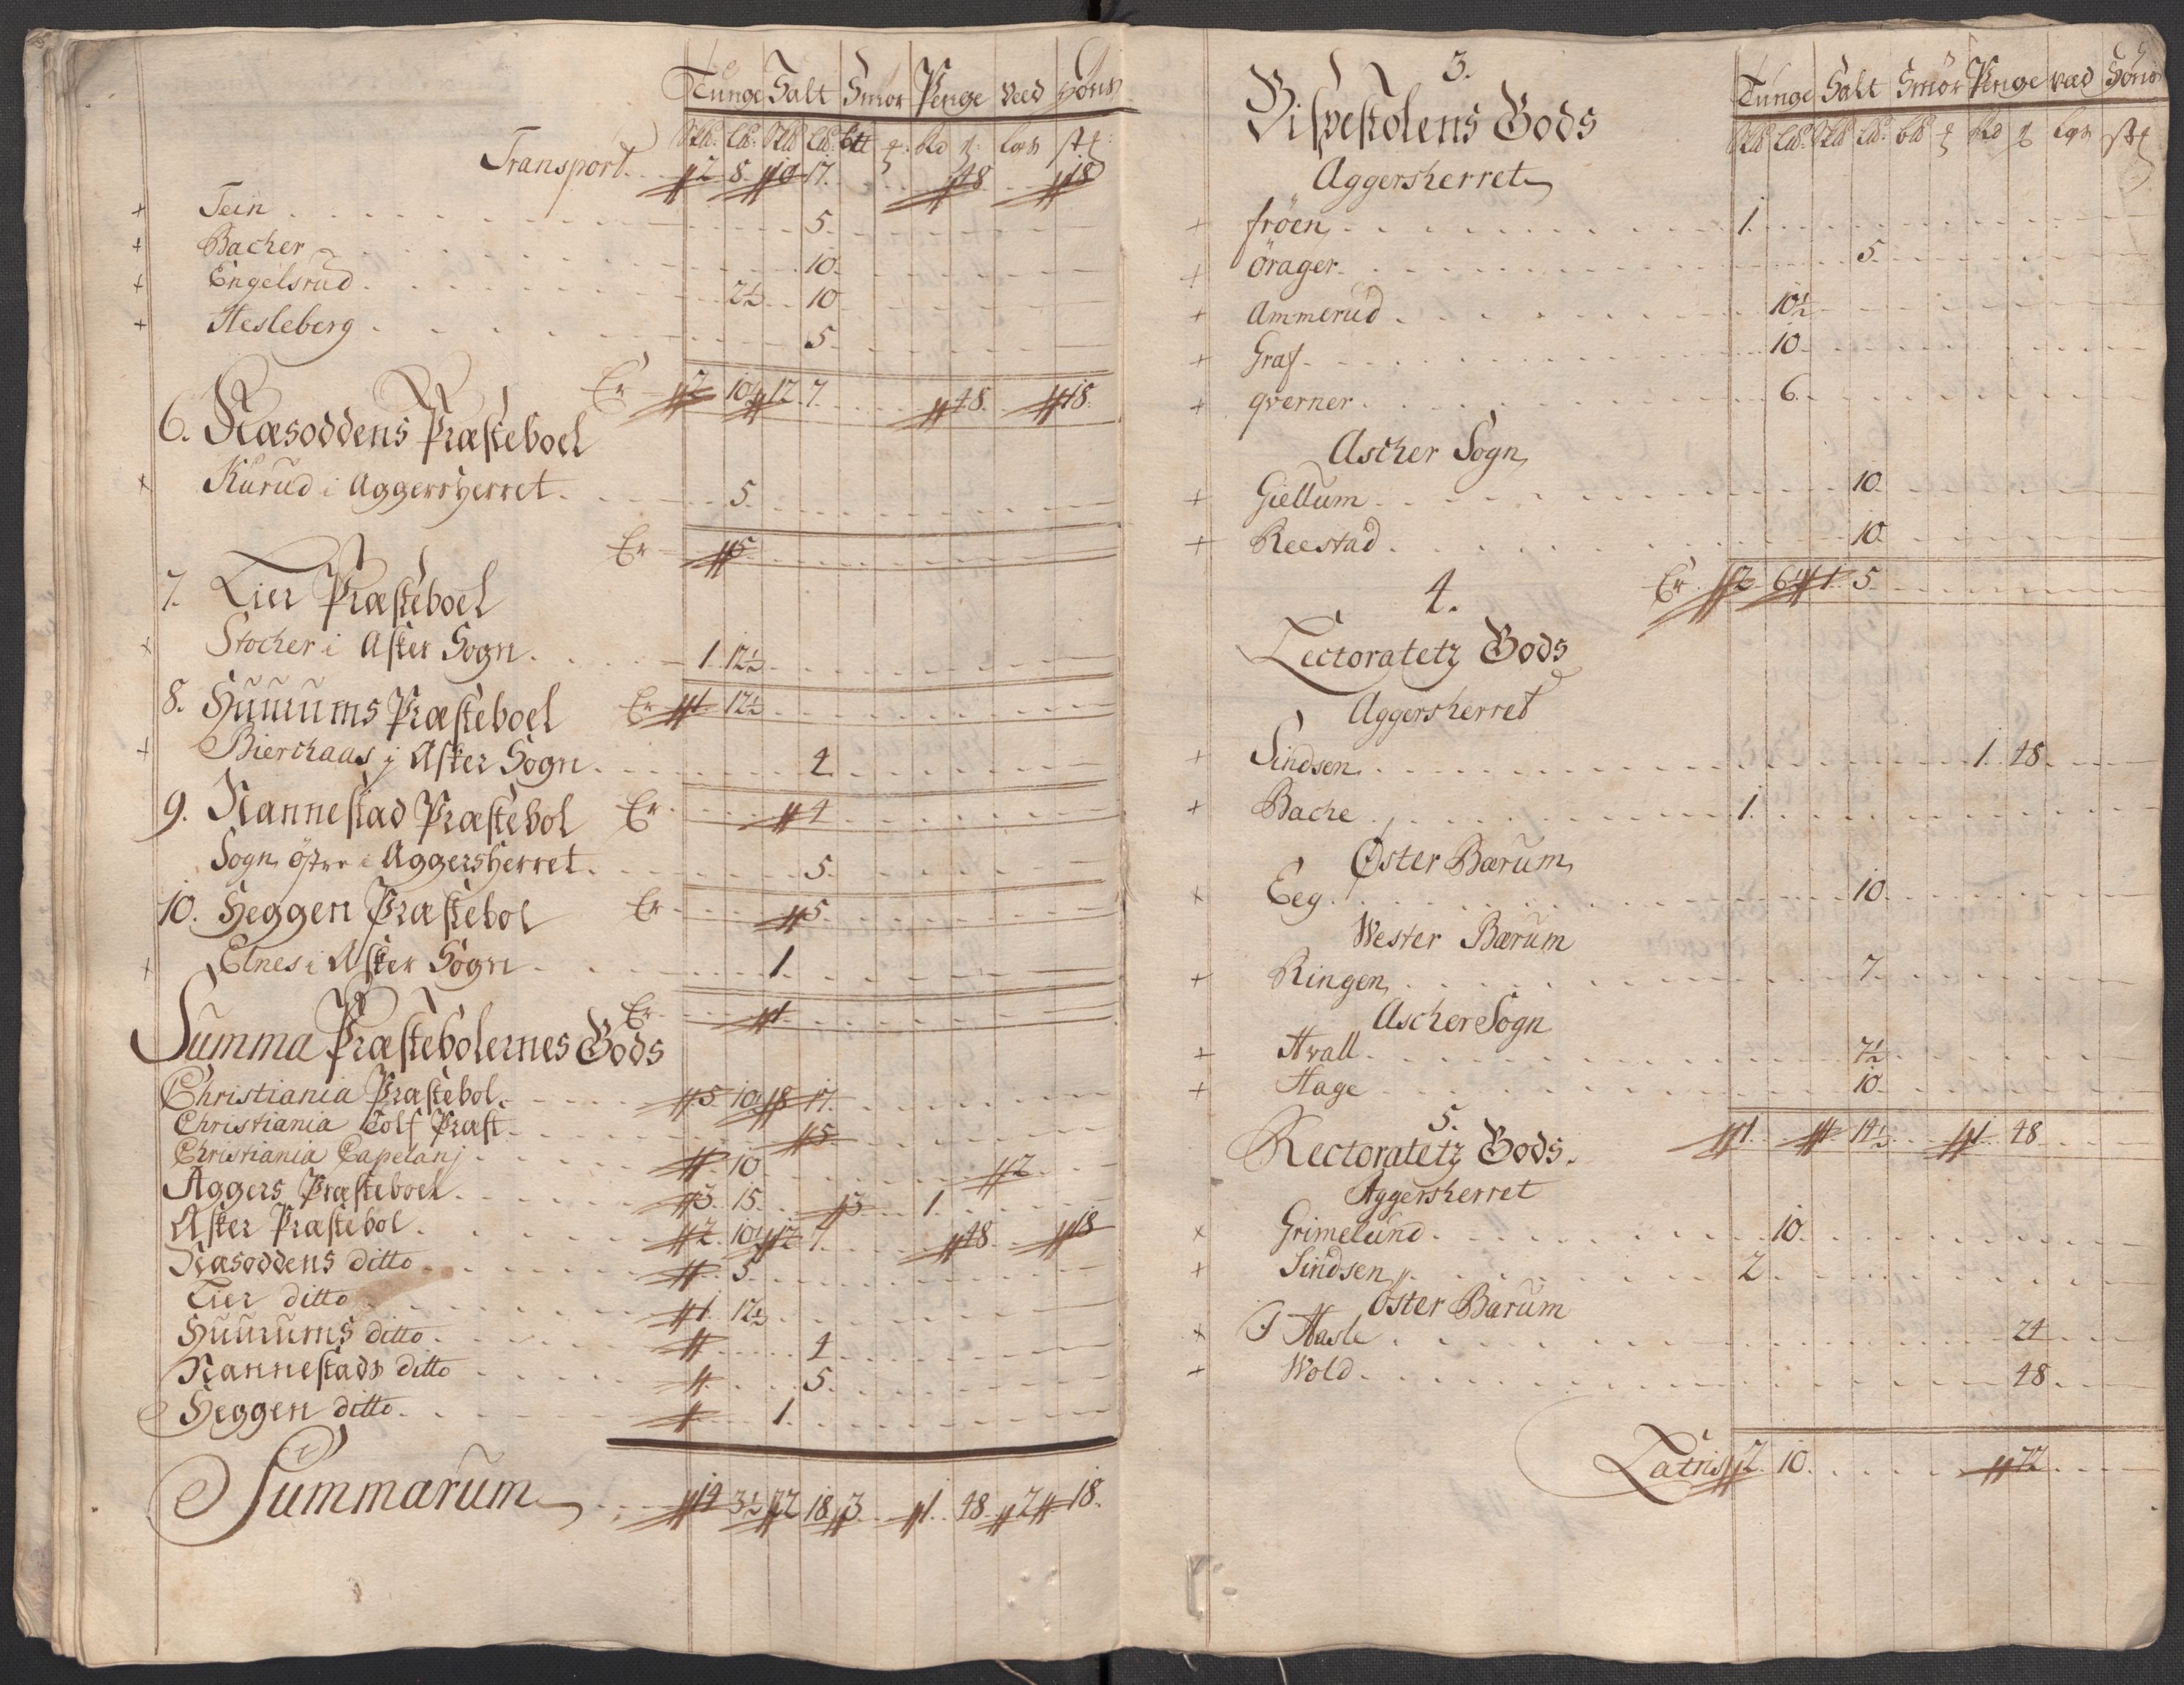 Tunge Salt Smör Penge Veed Höns
Transport 2 8 10 17 48 18
+ Tein 5
+ Bacher 10
+ Engelsrud 2½ 10
+ Hesleberg 5
Er 2 10½ 12 7 48 18
6. Næsoddens Præsteboel
+ Kurud i Aggersherret 5
Er 5
7. Lier Præsteboel
+ Stocher i Asker Sogn 1 12½
8. Huurums Præsteboel Er 1 12½
+ Bierchaas j Asker Sogn 4
9. Nannestad Præstebol Er 4
Sogn östre i Aggersherret 5
10. Heggen Præstebol Er 5
+ Elnes i Asker Sogn 1
Er 1
Summa Præstebolernes Gods
Christiania Præstebol 5 10 8 17
Christiania Tolf Præst 5
Christiania Capelanj 10 2
Aggers Præsteboel 3 15 3 1
Asker Præstebol 2 10½ 12 7 48 18
Næsoddens ditto 5
Lier ditto 1 12½
Huurums ditto 4
Nannestads ditto 5
Heggen ditto 1
Summarum 14 3½ 22 18 3 1 48 2 18
3.
Bispestolens Gods
Tunge Salt Smör Penge Væd Höns
Aggersherret
+ fröen 1
+ örager 5
+ Ammerud 10½
+ Graf 10
+ qverner 6
Ascher Sogn
+ Giellum 10
+ Reestad 10
Er 2 6½ 1 5
4.
Lectoratetz Gods
Aggersherret
+ Sindsen 1 48
+ Bache 1
Öster Bærum
+ Eeg 10
Wester Bærum
+ Ringen 7
Ascher Sogn
+ Hvall 7½
+ Hage 10
1 1 14½ 1 48
5.
Rectoratetz Gods
Aggersherret
+ Grimelund 10
+ Sindsen 2
öster Bærum
+ Hasle 24
+ Wold 48
Latris 2 10 72